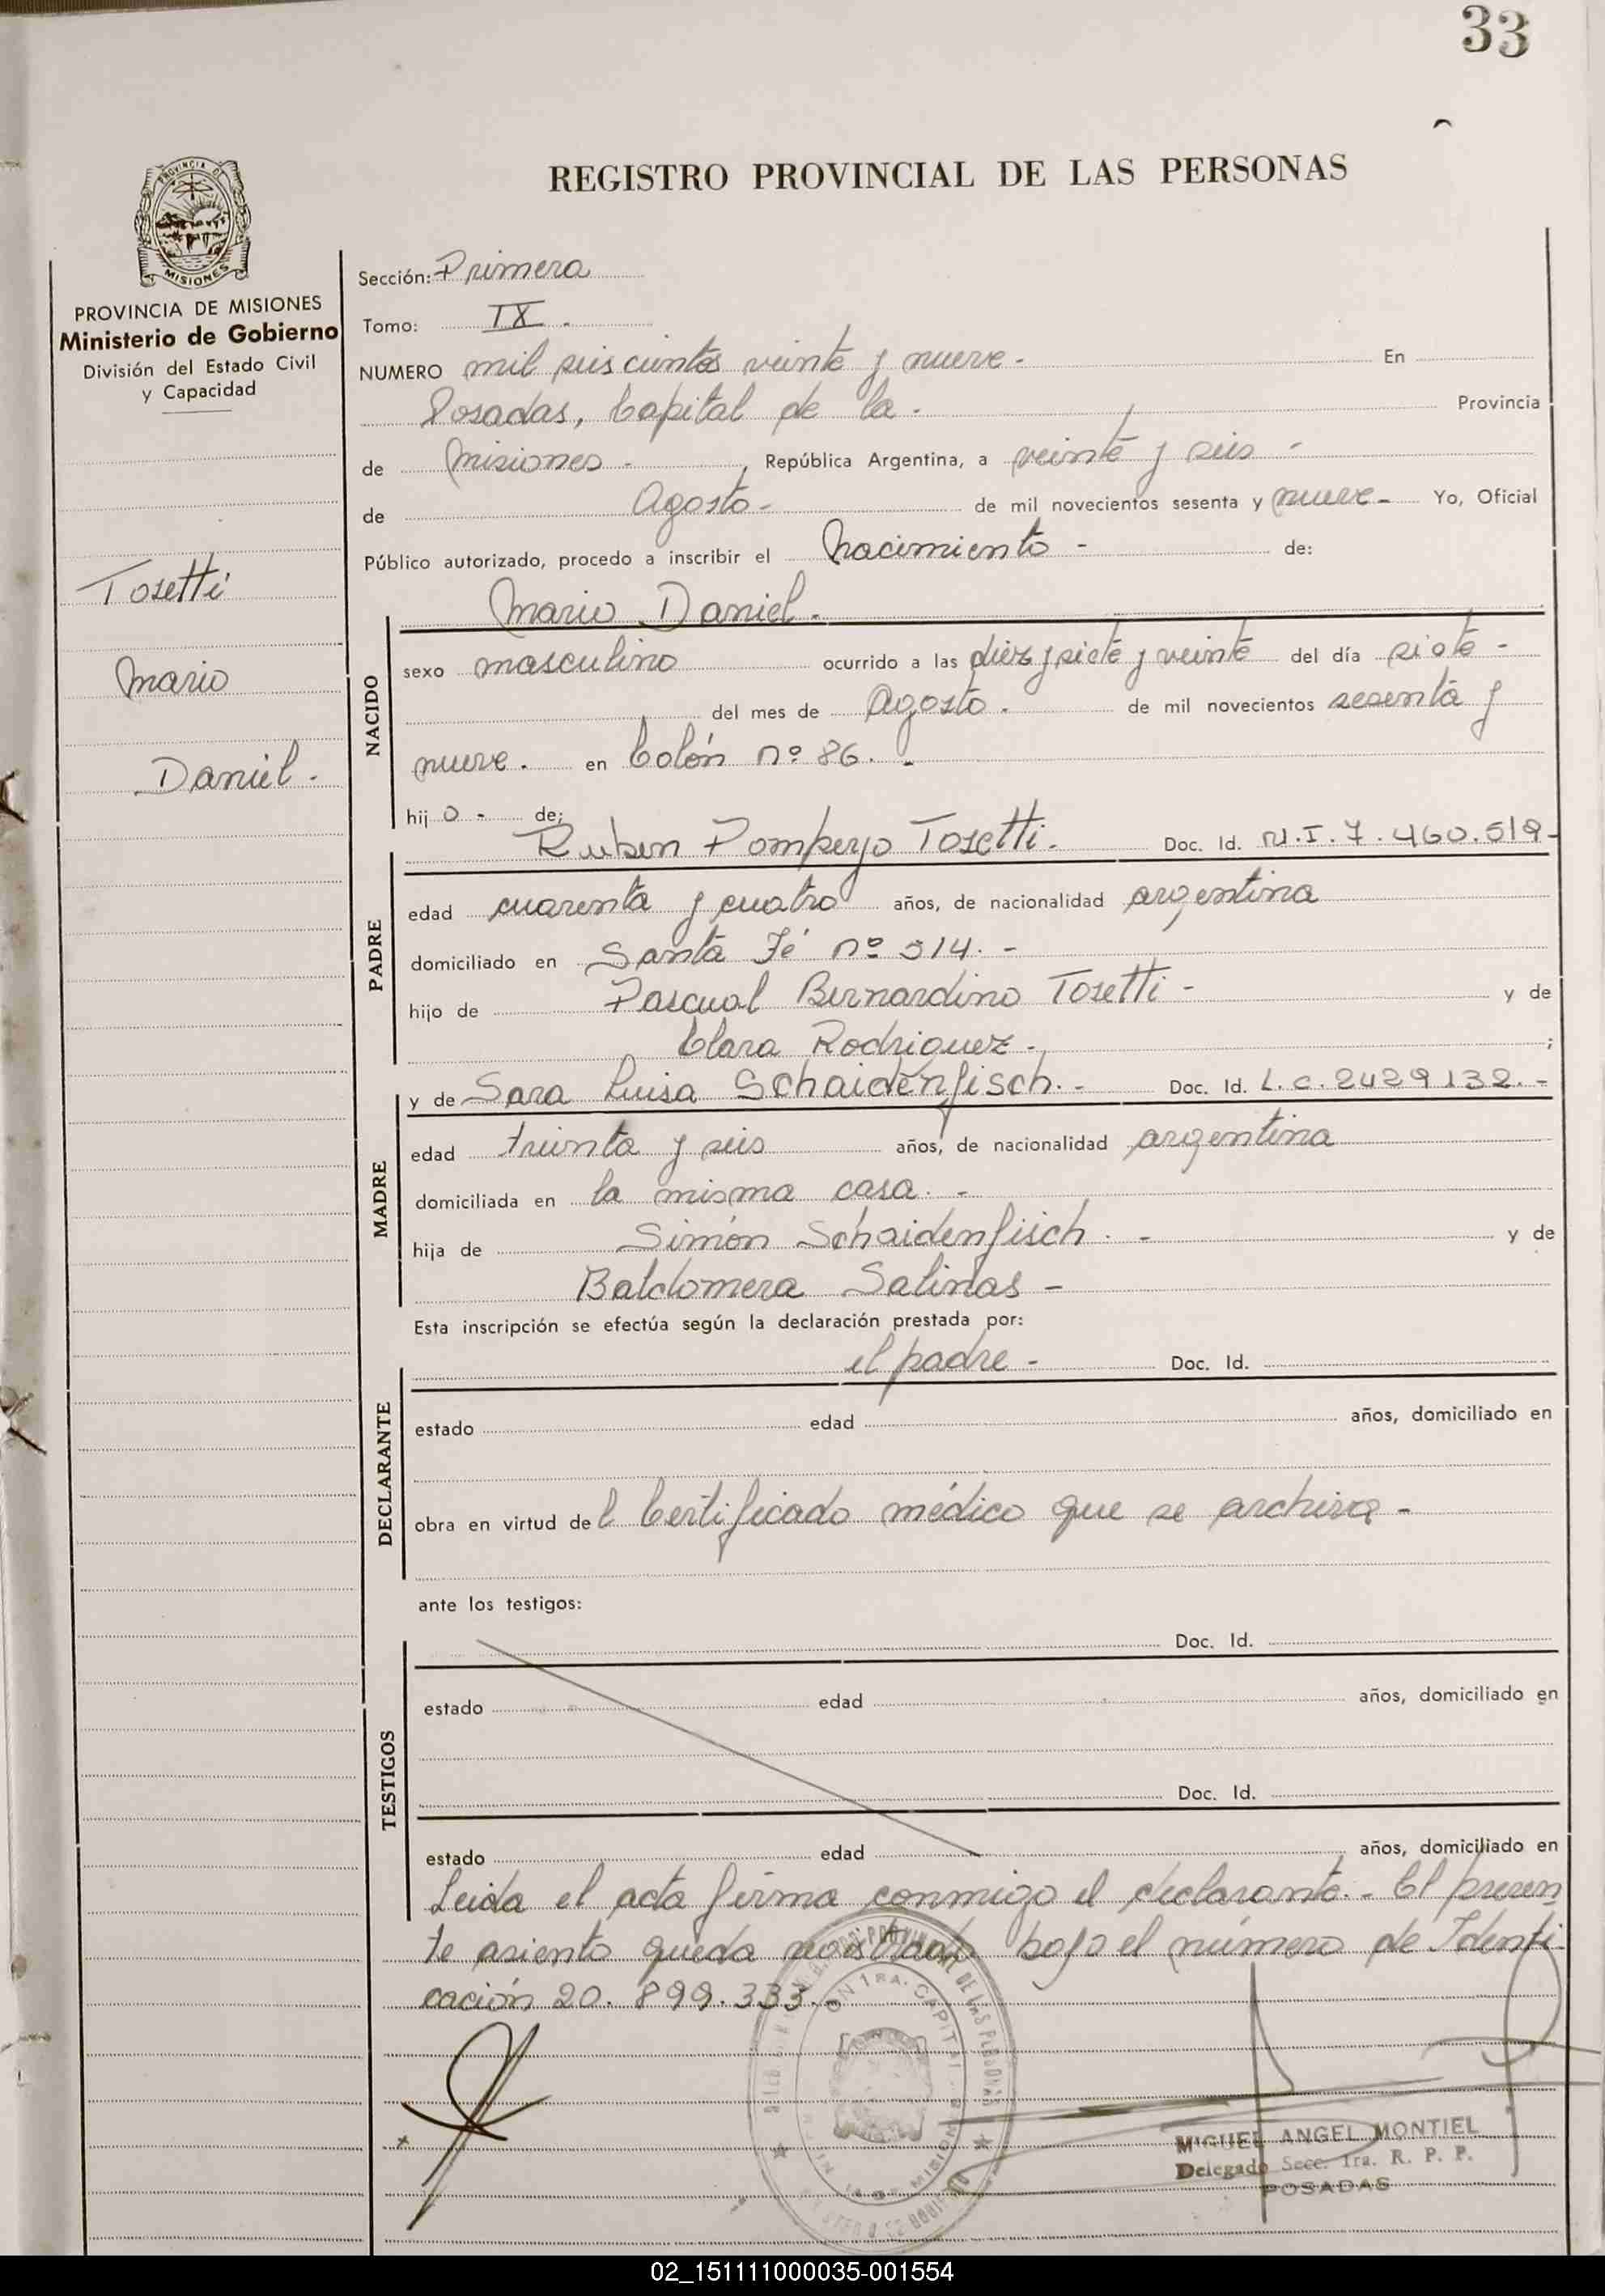 33
REGISTRO PROVINCIAL DE LAS PERSONAS
PROVINCIA DE MISIONES
Ministerio de Gobierno
División del Estado Civil
y Capacidad
Tosetti
Mario
Daniel.
Sección: Primera
Tomo: IX.
NUMERO mil seiscientos veinte y nueve - En
Posadas, Capital de la. Provincia
de Misiones - , República Argentina, a veinte y seis -
de Agosto - de mil novecientos sesenta y nueve - Yo, Oficial
Público autorizado, procedo a inscribir el Nacimiento - de:
Mario Daniel.
NACIDO
sexo masculino ocurrido a las diez y siete y veinte del día siete -
del mes de Agosto. de mil novecientos sesenta y
nueve. en Colón nº 86. -
hij o - de;
Ruben Pompeyo Tosetti. Doc. Id. N.I.7.460.519-
PADRE
edad cuarenta y cuatro años, de nacionalidad argentina
domiciliado en Santa Fé nº 514. -
hijo de Pascual Bernardino Tosetti - y de
Clara Rodriguez - ;
y de Sara Luisa Schaidenfisch. - Doc. Id. L.C.2429132. -
MADRE
edad treinta y seis años, de nacionalidad argentina
domiciliada en la misma casa. -
hija de Simón Schaidenfisch. - y de
Baldomera Salinas -
Esta inscripción se efectúa según la declaración prestada por:
el padre - Doc. Id.
DECLARANTE
estado edad años, domiciliado en
obra en virtud del Certificado médico que se archiva -
ante los testigos:
Doc. Id.
TESTIGOS
estado edad años, domiciliado en
Doc. Id.
estado edad años, domiciliado en
Leida el acta firma conmigo el declarante. - El presen
te asiento queda registrado bajo el número de Identi
cación 20.899.333.-
MIGUEL ANGEL MONTIEL
Delegado Secc. 1ra. R. P. P.
POSADAS
02_151111000035-001554